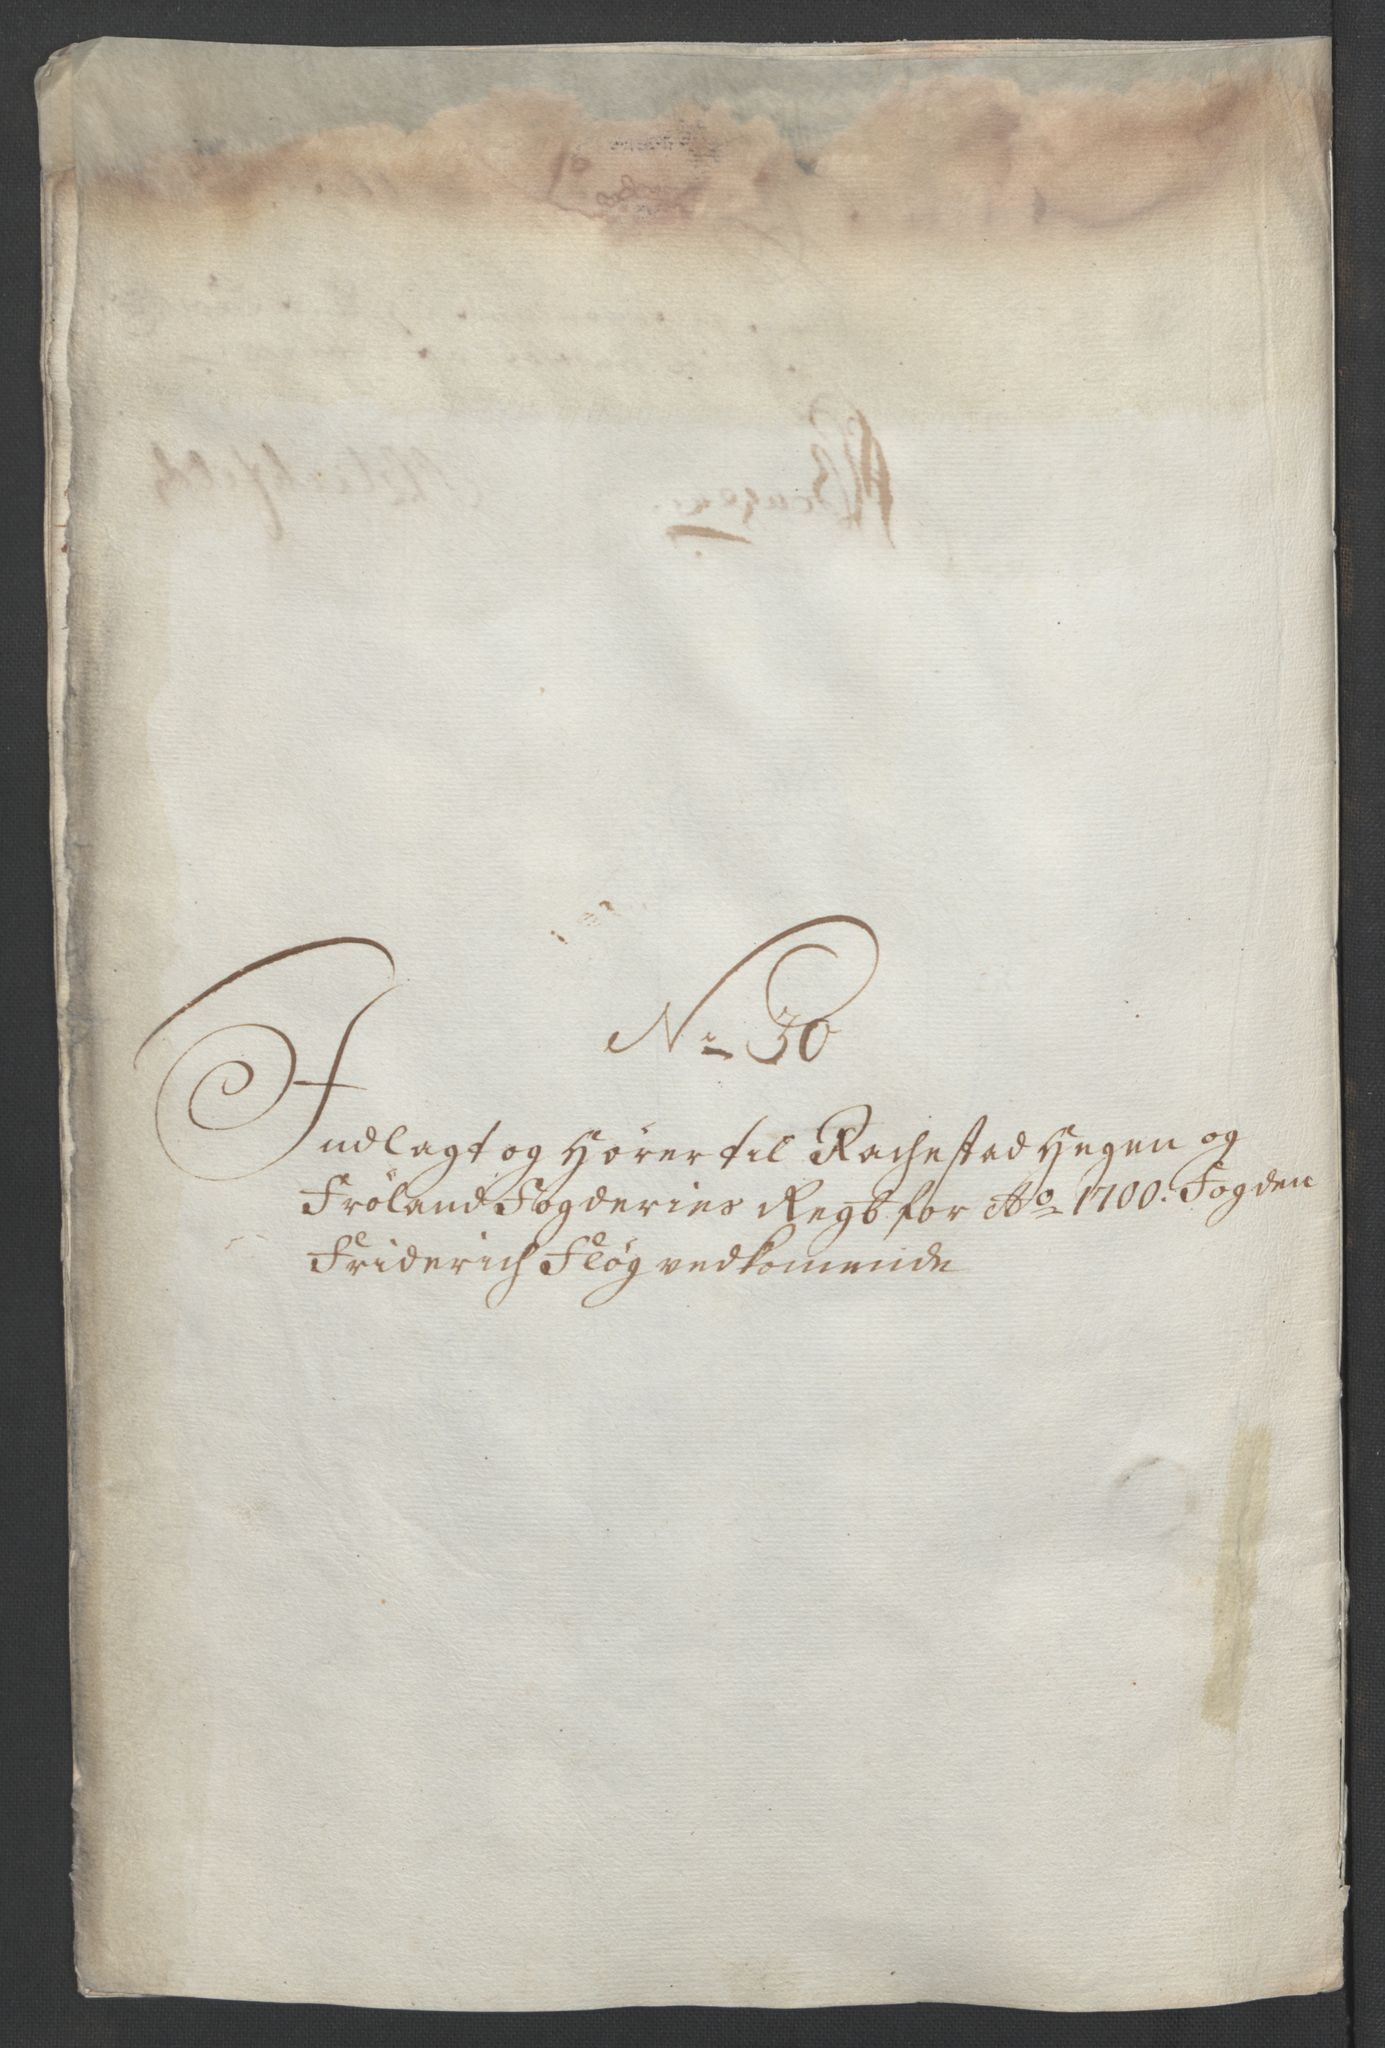 No 30
Indlagt og Hörer til Rachestad Hegen og
Fröland Fogderies Regb for Ao 1700. Fogden
Friderich Fløg vedkomende